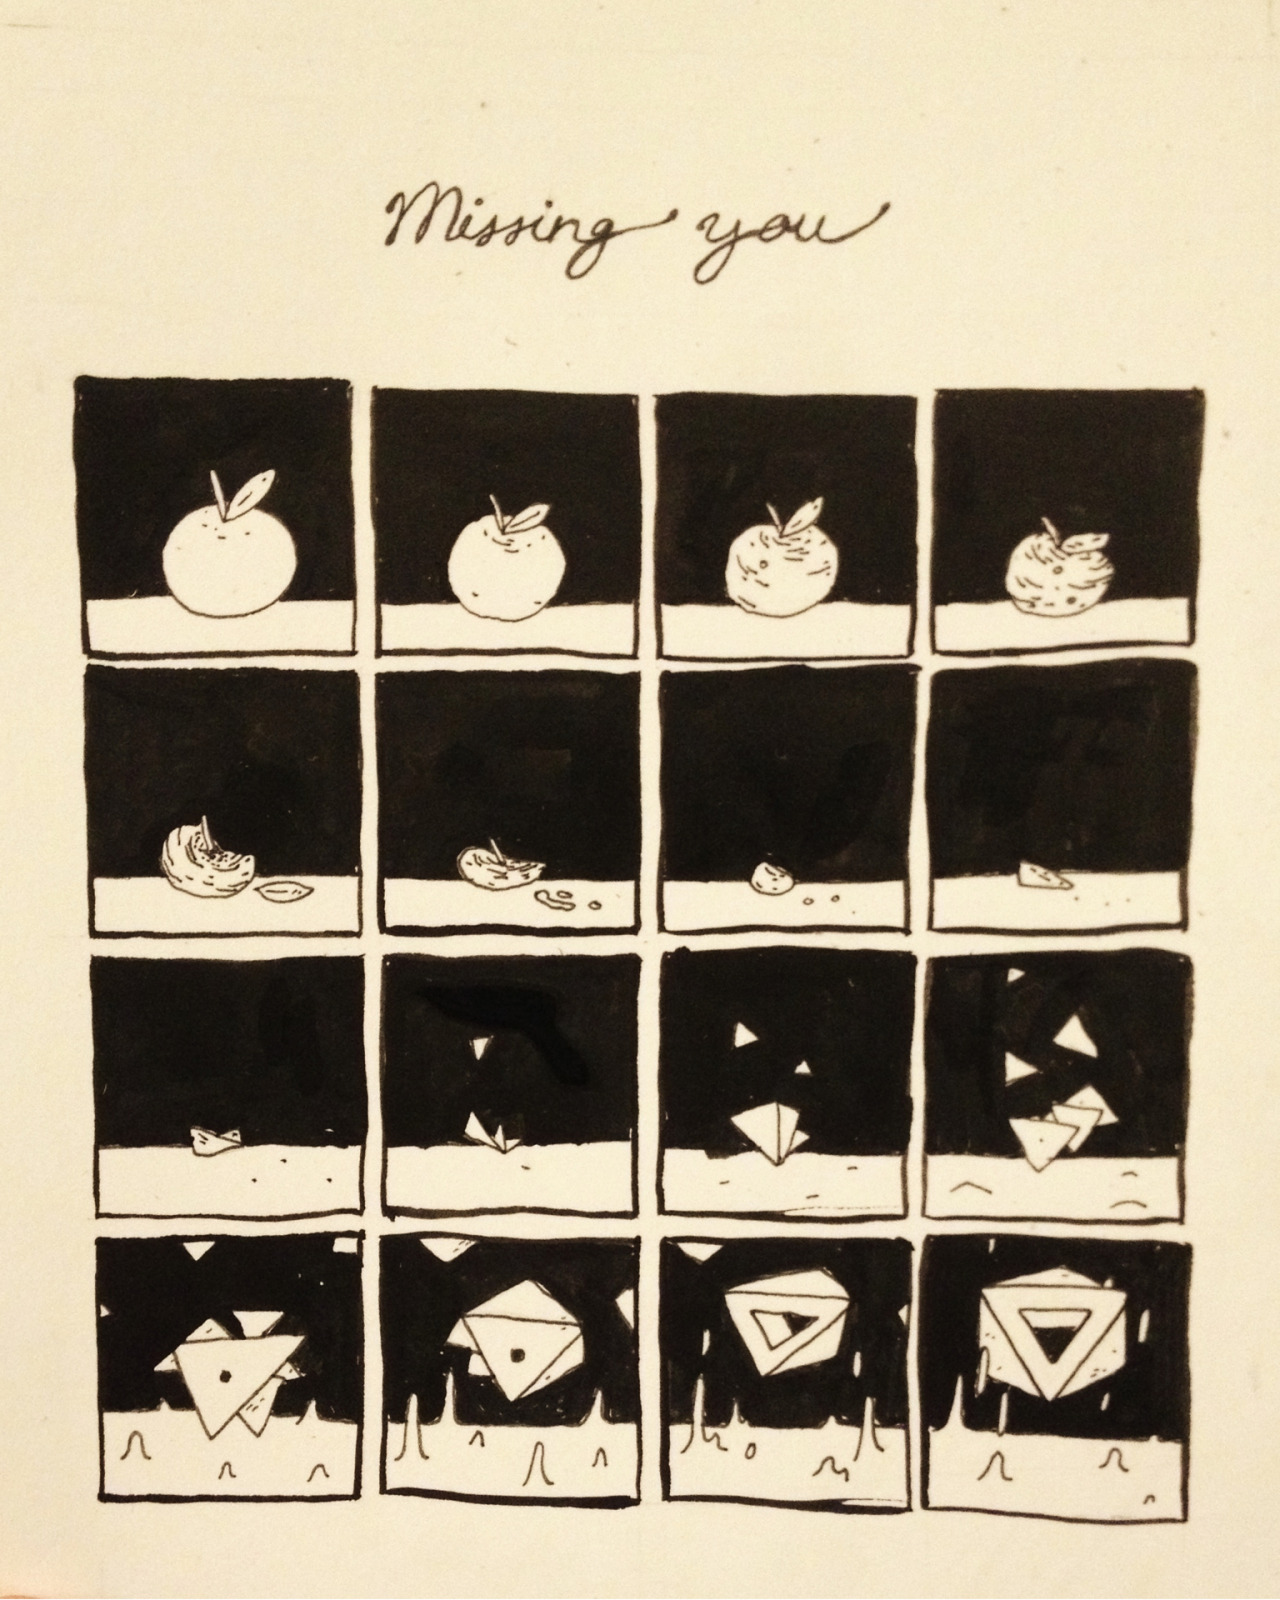 Missing you